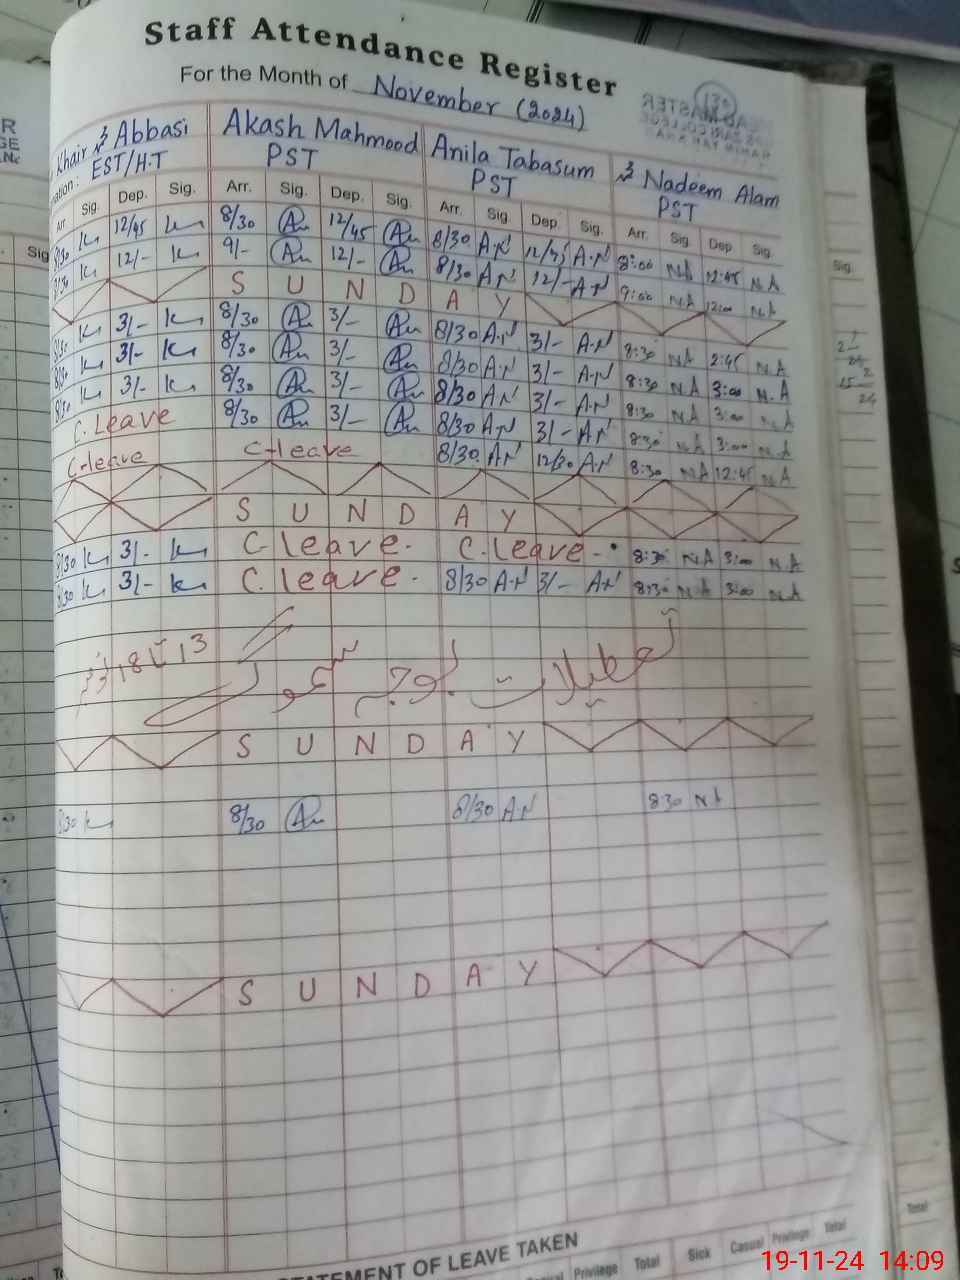 Staff Attendance Register
For the Month of November (2024)
Khair Abbasi Akash Mahmood Anila Tabasum Nadeem Alam
EST/H.T PST PST PST
Arr. Sig. Dep. Sig. Arr. Sig. Dep. Sig. Arr. Sig Dep. Sig. Arr. Sig Dep. Sig.
8/30 K 12/45 K 8/30 An 12/45 An 8/30 A.N 12/45 A.N 8:00 NA 12:45 N.A
8/30 K 12/- K 9/- An 12/- An 8/30 AN 12/- AN 9:00 NA 12:00 N.A
S U N D A Y
8/30 K 3/- K 8/30 An 3/- An 8/30 A.N 3/- A.N 8:30 NA 2:45 N.A
8/30 K 3/- K 8/30 An 3/- An 8/30 AN 3/- A.N 8:30 NA 3:00 N.A
8/30 K 3/- K 8/30 An 3/- An 8/30 AN 3/- A.N 8:30 NA 3:00 N.A
C. Leave 8/30 An 3/- An 8/30 AN 3/- AN 8:30 NA 3:00 N.A
C-leave C-leave 8/30 AN 12/30 AN 8:30 NA 12:45 N.A
S U N D A Y
8/30 K 3/- K C. leave. C. leave - 8:30 NA 3:00 N.A
8/30 K 3/- K C. leave. 8/30 A.N 3/- AN 8:30 N.A 3:00 N.A
تعطیلات بوجہ سموگ 13 تا 18
S U N D A Y
8/30 K 8/30 An 8/30 AN 830 NA
S U N D A Y
STATEMENT OF LEAVE TAKEN
Casual Privilege Total Sick Casual Privilege Total
19-11-24 14:09